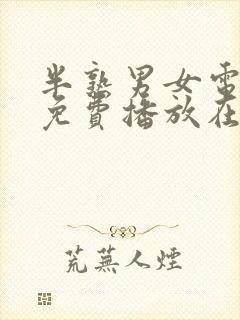 半熟男女電
免費播放在
荒蕪人煙